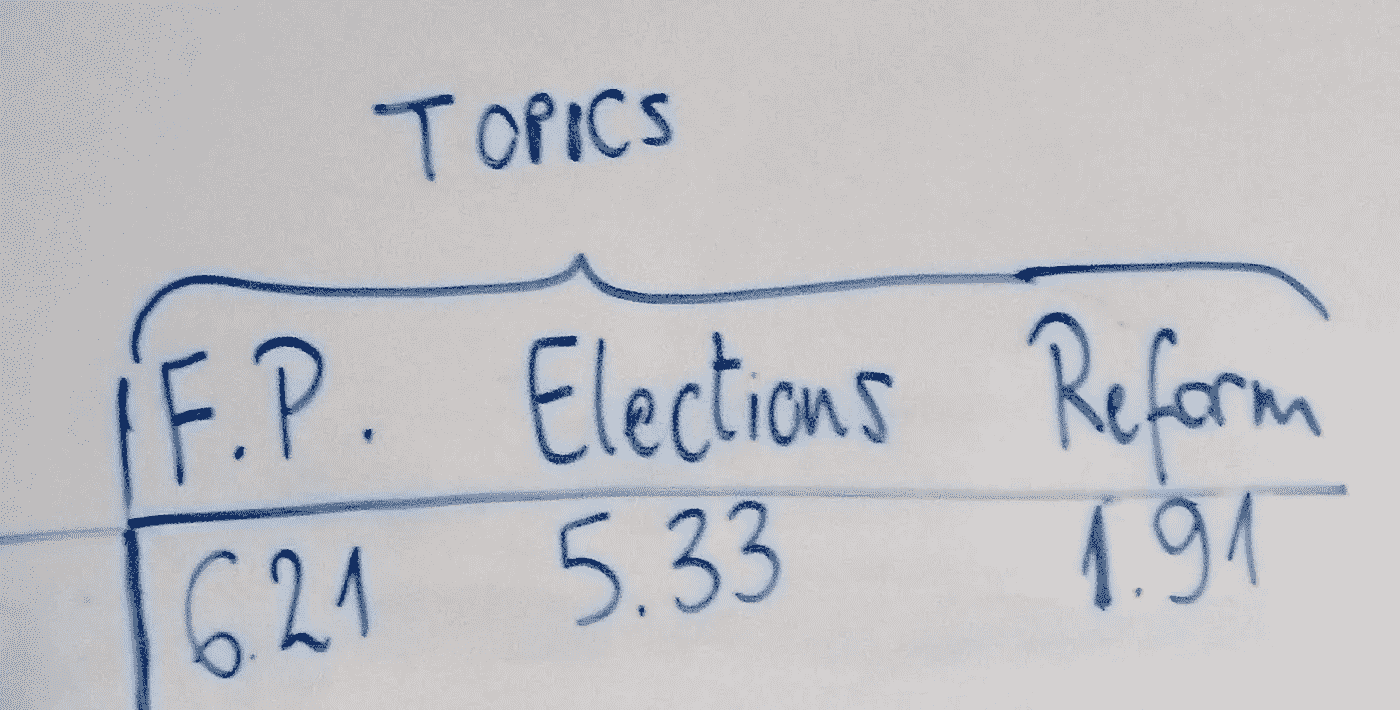 TOPICS
F.P. Elections Reform
6.21 5.33 1.91